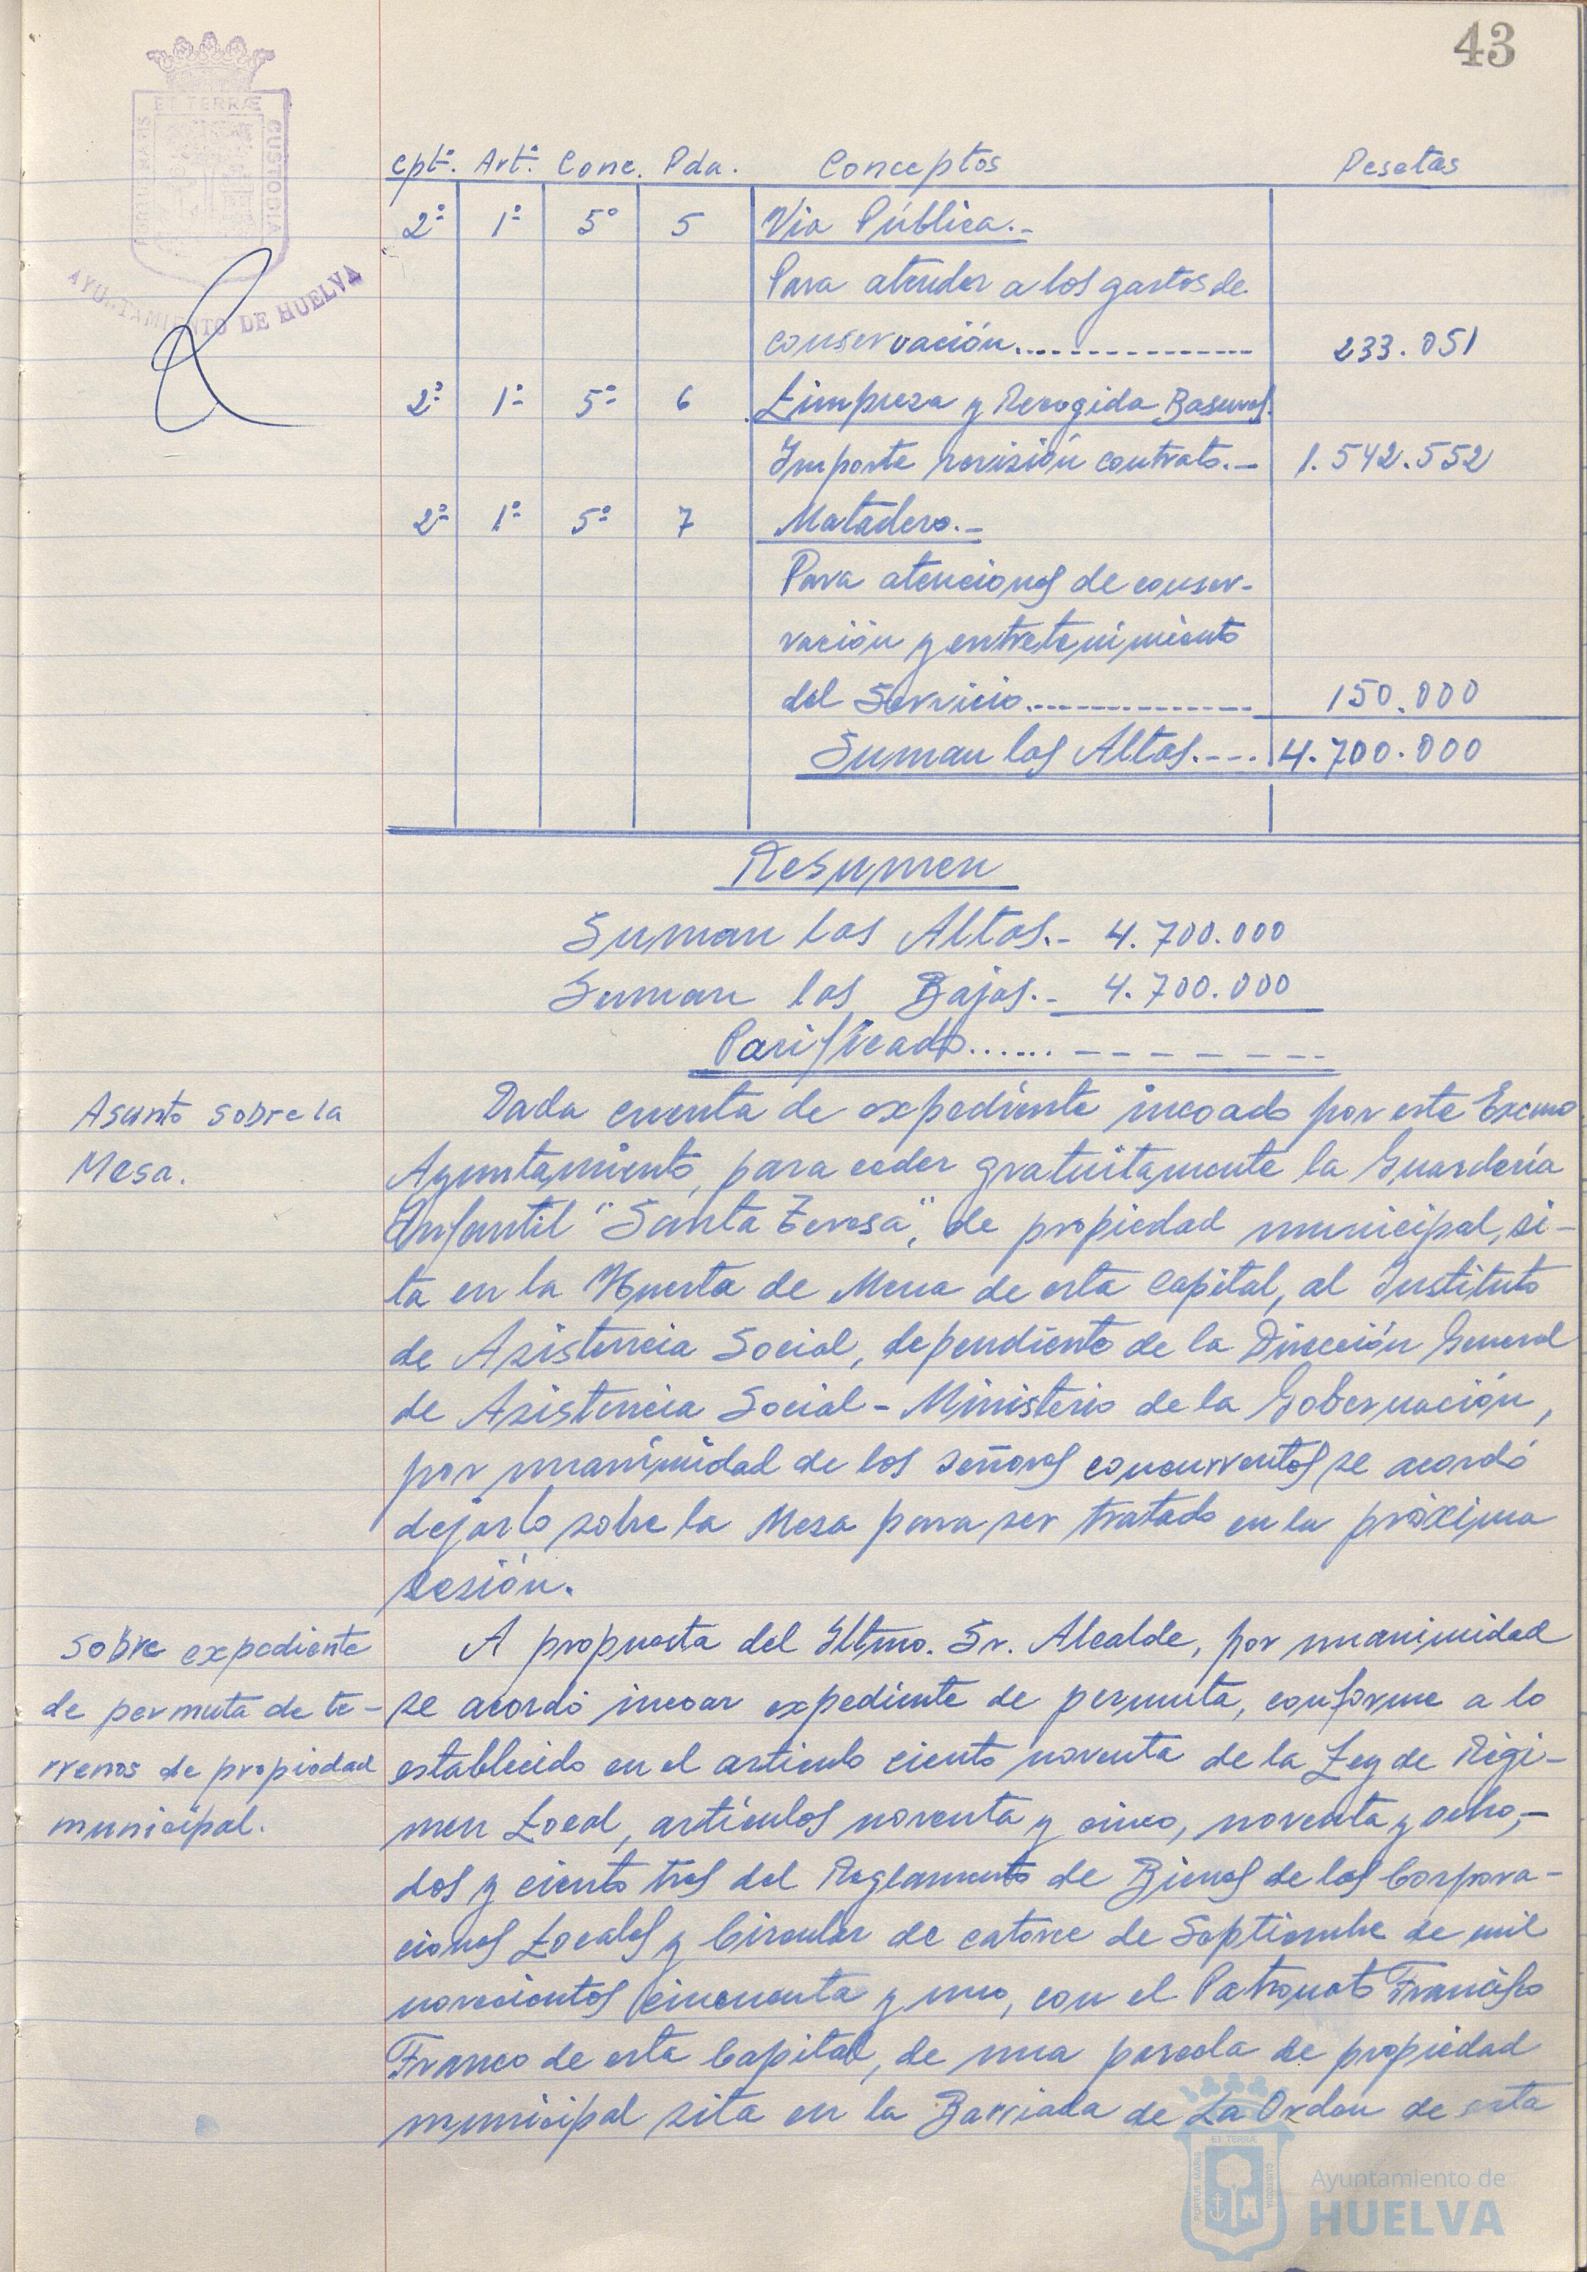 43
PORTUS MARIS ET TERRÆ CUSTODIA
AYUNTAMIENTO DE HUELVA
Cptº. Artº. Conc. Pda. Conceptos Pesetas
2º 1º 5º 5 Via Pública.-
Para atender a los gastos de
conservación................ 233.051
2º 1º 5º 6 Limpieza y Recogida Basuras.
Importe revisión contrato.- 1.542.552
2º 1º 5º 7 Matadero.-
Para atenciones de conser-
vación y entretenimiento
del Servicio................ 150.000
Suman las Altas.---- 4.700.000
Resumen
Suman las Altas.- 4.700.000
Suman las Bajas.- 4.700.000
Parificado......-------
Asunto sobre la
Mesa.
Dada cuenta de expediente incoado por este Excmo
Ayuntamiento, para ceder gratuitamente la Guardería
Infantil "Santa Teresa", de propiedad municipal, si-
ta en la Huerta de Mena de esta Capital, al Instituto
de Asistencia Social, dependiente de la Dirección General
de Asistencia Social - Ministerio de la Gobernación,
por unanimidad de los señores concurrentes se acordó
dejarlo sobre la Mesa para ser tratado en la próxima
sesión.
Sobre expediente
de permuta de te-
rrenos de propiedad
municipal.
A propuesta del Iltmo. Sr. Alcalde, por unanimidad
se acordó incoar expediente de permuta, conforme a lo
establecido en el articulo ciento noventa de la Ley de Régi-
men Local, artículos noventa y cinco, noventa y ocho,-
dos y ciento tres del Reglamento de Bienes de las Corpora-
ciones Locales y Circular de catorce de Septiembre de mil
novecientos cincuenta y uno, con el Patronato Francisco
Franco de esta Capital, de una parcela de propiedad
municipal sita en la Barriada de La Orden de esta
PORTUS MARIS ET TERRÆ CUSTODIA
Ayuntamiento de
HUELVA